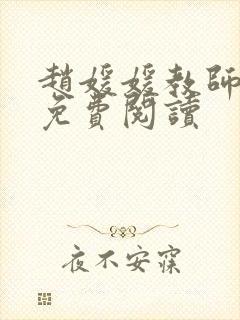 趙媛媛教師
免費閱讀
夜不安寐